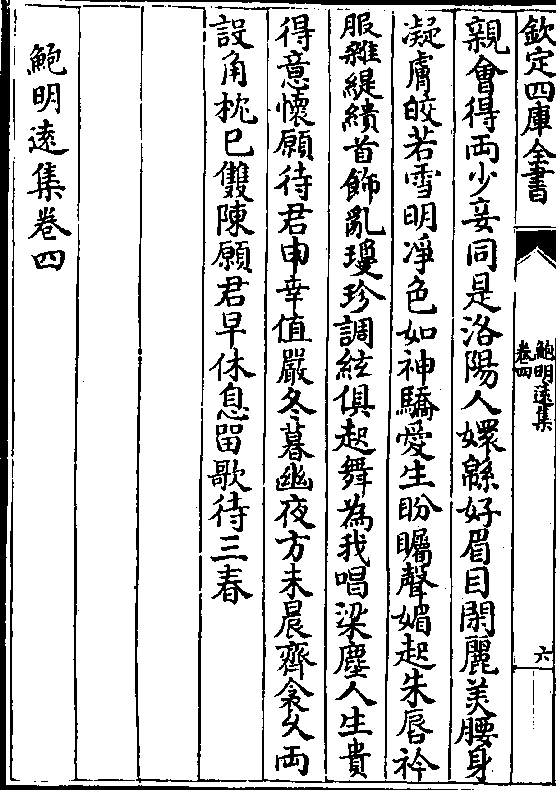 欽定四庫全書
鮑明遠集
卷四
六
親會得兩少妾同是洛陽人嬛緜好眉目閑麗美腰身
凝膚皎若雪明凈色如神驕愛生盼矚聲媚起朱唇衿
服雜緹繢首飾亂瓊珍調絃俱起舞為我唱梁塵人生貴
得意懷願待君申幸值嚴冬暮幽夜方未晨齊衾久兩
設角枕已雙陳願君早休息留歌待三春
鮑明遠集卷四